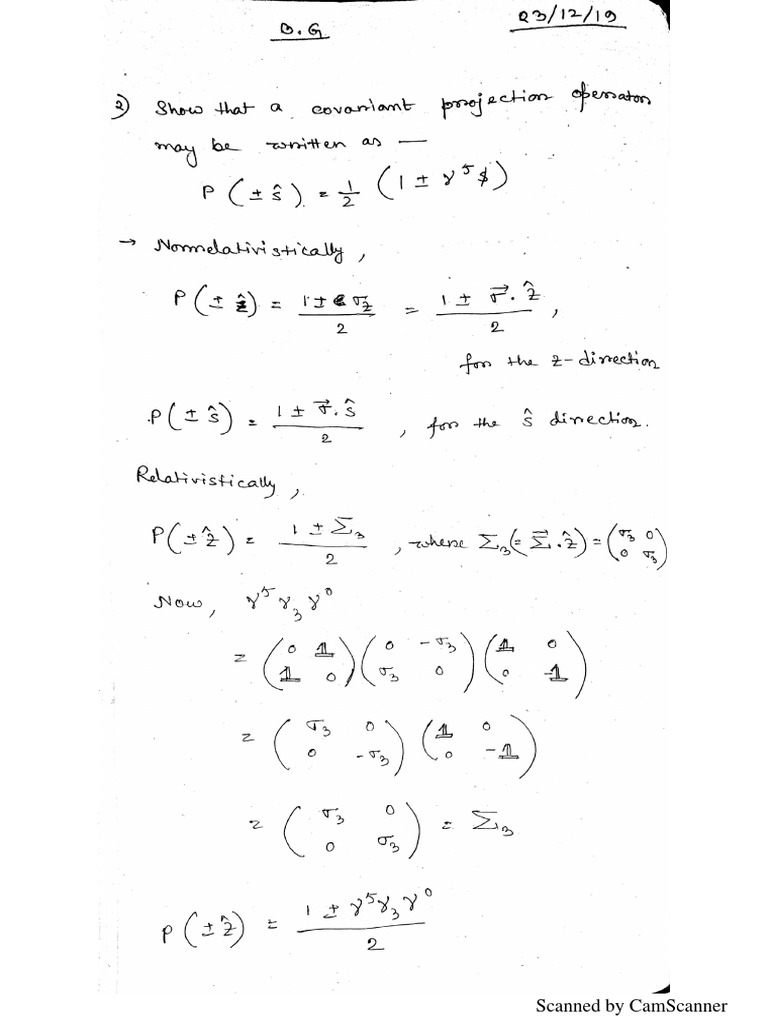 B.G
23/12/19
2) Show that a covariant projection operator
may be written as —
P(± ŝ) = 1/2 (1 ± γ⁵ s̸)
→ Nonrelativistically,
P(± ẑ) = (1 ± σ_z)/2 = (1 ± σ⃗.ẑ)/2 ,
for the z-direction
P(± ŝ) = (1 ± σ⃗.ŝ)/2 , for the ŝ direction.
Relativistically,
P(± ẑ) = (1 ± Σ₃)/2 , where Σ₃(= Σ⃗.ẑ) = (σ₃ 0; 0 σ₃)
Now, γ⁵ γ₃ γ⁰
= (0 𝟙; 𝟙 0) (0 -σ₃; σ₃ 0) (𝟙 0; 0 -𝟙)
= (σ₃ 0; 0 -σ₃) (𝟙 0; 0 -𝟙)
= (σ₃ 0; 0 σ₃) = Σ₃
P(± ẑ) = (1 ± γ⁵γ₃γ⁰)/2
Scanned by CamScanner